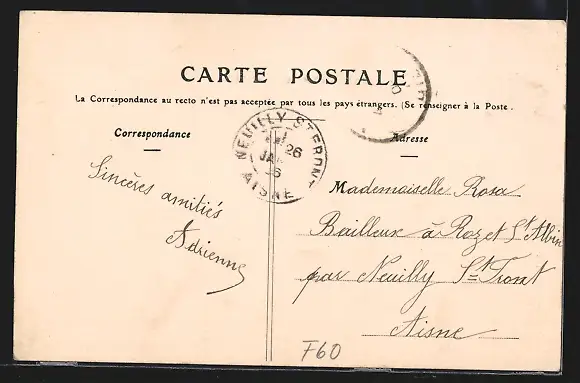 CARTE POSTALE
La Correspondance au recto n'est pas acceptée par tous les pays étrangers. (Se renseigner à la Poste.
Correspondance
Adresse
NEUILLY-ST-FRONT
26
AISNE
Sincères amitiés
Adrienne
Mademoiselle Rosa
Bailleux à Rozet St Albin
par Neuilly St Front
Aisne
F60